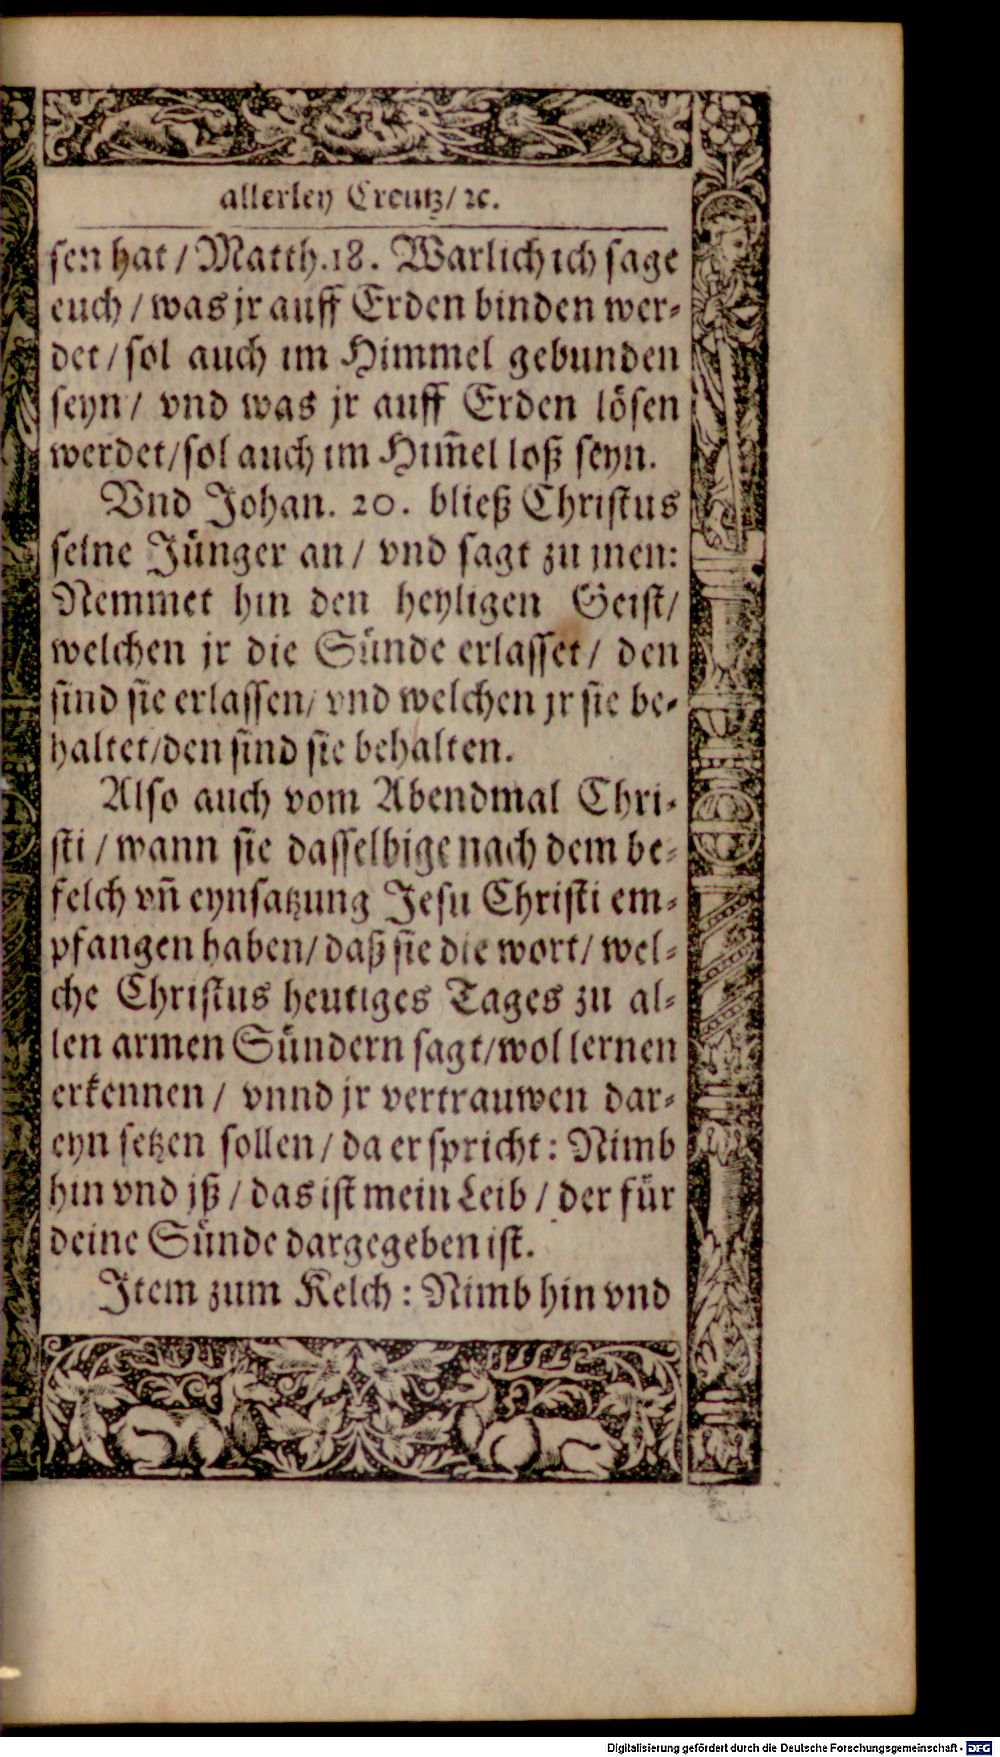 allerley Creutz/ ꝛc.
sen hat / Matth.18. Warlich ich sage
euch / was jr auff Erden binden wer⸗
det / sol auch im Himmel gebunden
seyn / vnd was jr auff Erden lösen
werdet/sol auch im Him̃el loß seyn.
Vnd Johan. 20. bließ Christus
seine Jünger an / vnd sagt zu jnen:
Nemmet hin den heyligen Geist/
welchen jr die Sünde erlasset / den
sind sie erlassen/ vnd welchen jr sie be⸗
haltet/den sind sie behalten.
Also auch vom Abendmal Chri⸗
sti / wann sie dasselbige nach dem be⸗
felch vñ eynsatzung Jesu Christi em⸗
pfangen haben/ daß sie die wort/ wel⸗
che Christus heutiges Tages zu al⸗
len armen Sündern sagt/wol lernen
erkennen / vnnd jr vertrauwen dar⸗
eyn setzen sollen / da er spricht: Nimb
hin vnd jß / das ist mein Leib / der für
deine Sünde dargegeben ist.
Item zum Kelch : Nimb hin vnd
Digitalisierung gefördert durch die Deutsche Forschungsgemeinschaft - DFG